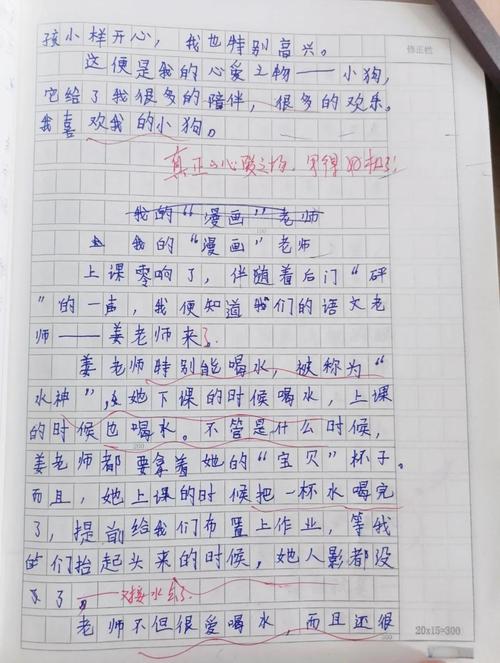 孩小样开心，我也特别高兴。
修正栏
这便是我的心爱之物——小狗，
它给了我很多的陪伴，很多的欢乐。
我喜欢我的小狗。
真正心爱之物，
我的“漫画”老师
我的“漫画”老师
上课零响了，伴随着后门“砰
”的一声，我便知道我们的语文老
师——姜老师来了
姜老师特别能喝水，被称为“
水神”，她下课的时候喝水，上课
的时候也喝水。不管是什么时候，
姜老师都要拿着她的“宝贝”杯子。
而且，她上课的时候把一杯水喝完
了，提前给我们布置上作业，等我
们抬起头来的时候，她人影都没
了了，——接水去了
老师不但很爱喝水，而且还很
20×15=300